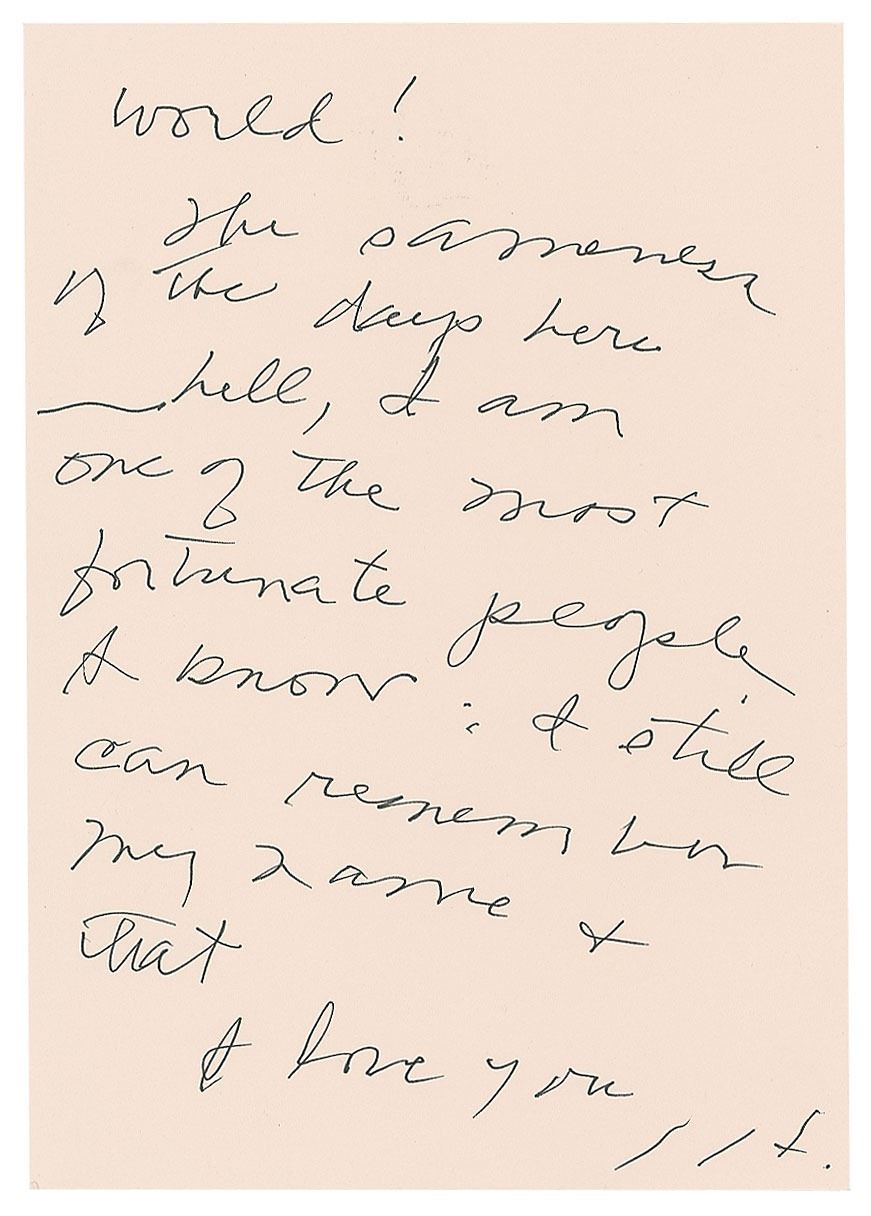 world!
The sameness
of the days here
— hell, I am
one of the most
fortunate people
I know: I still
can remember
my name &
that
I love you